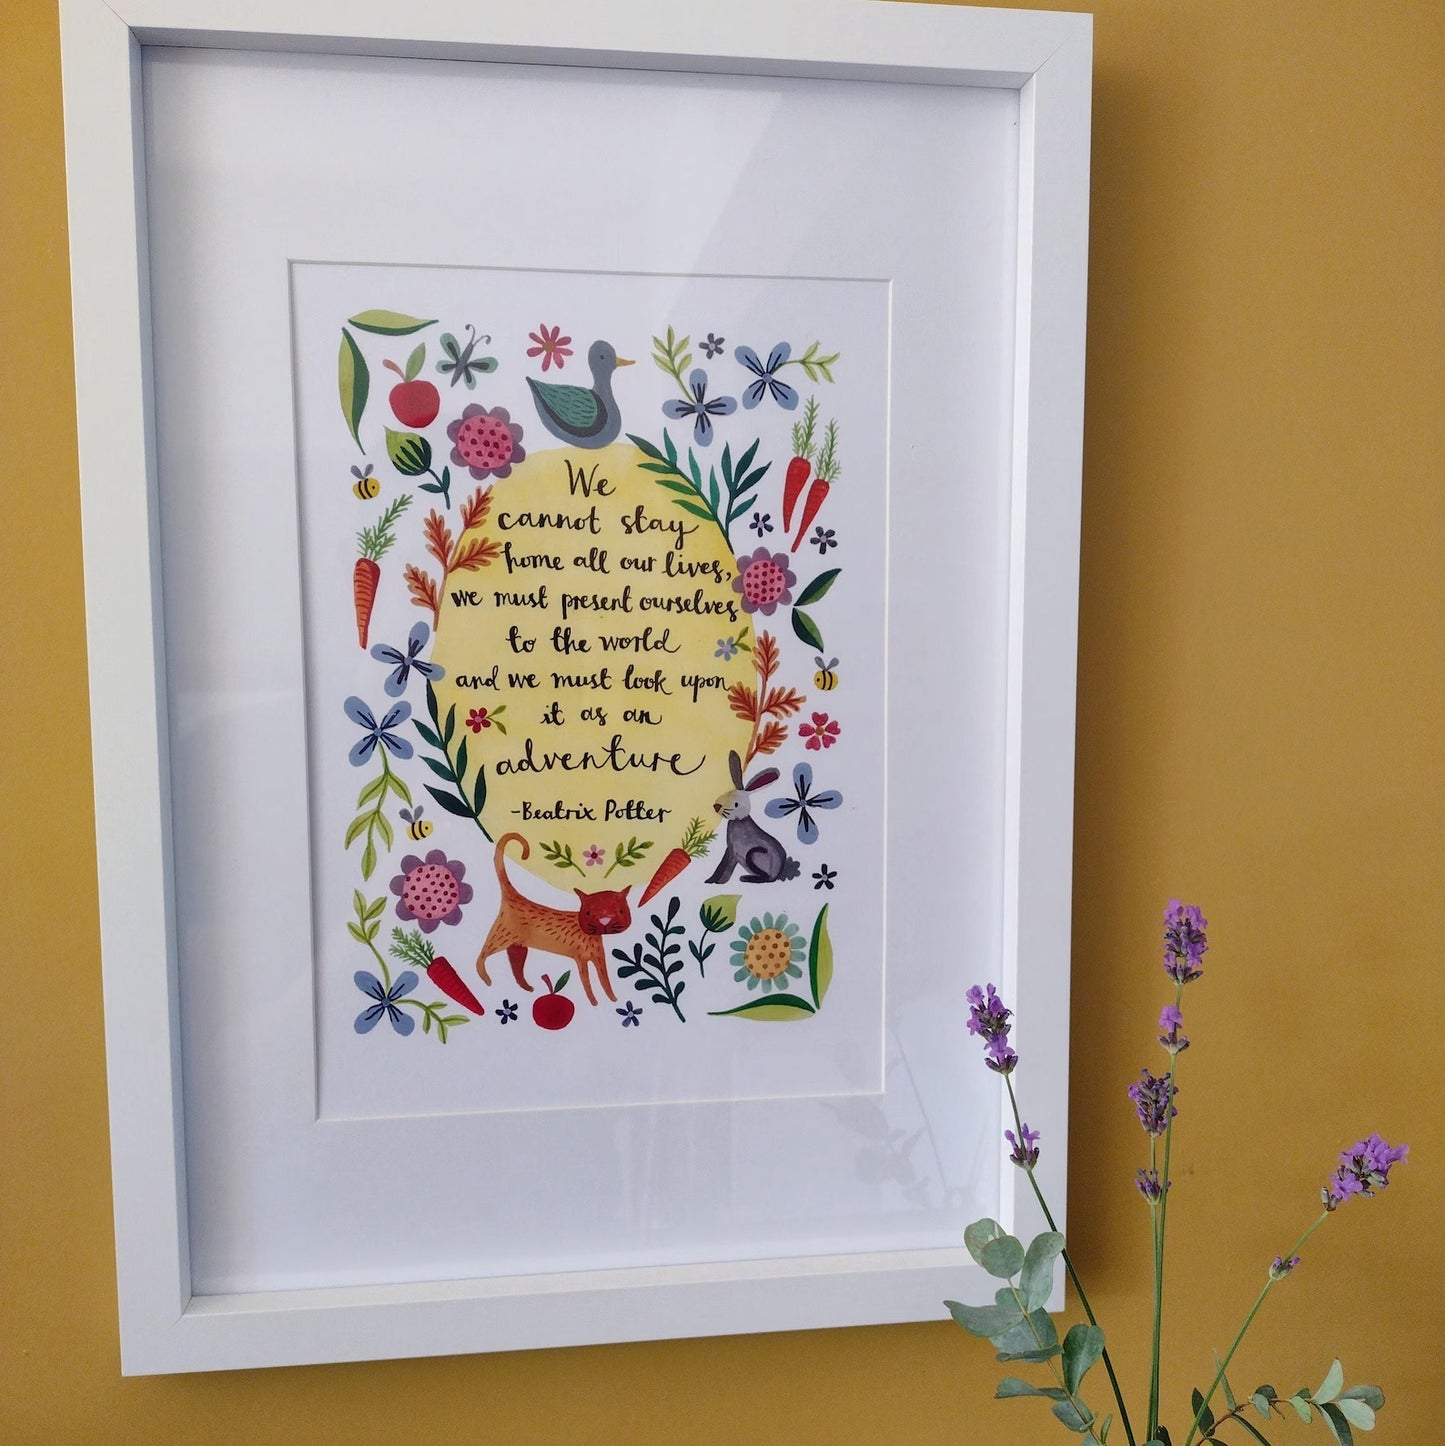 We
cannot stay
home all our lives,
we must present ourselves
to the world
and we must look upon
it as an
adventure
-Beatrix Potter